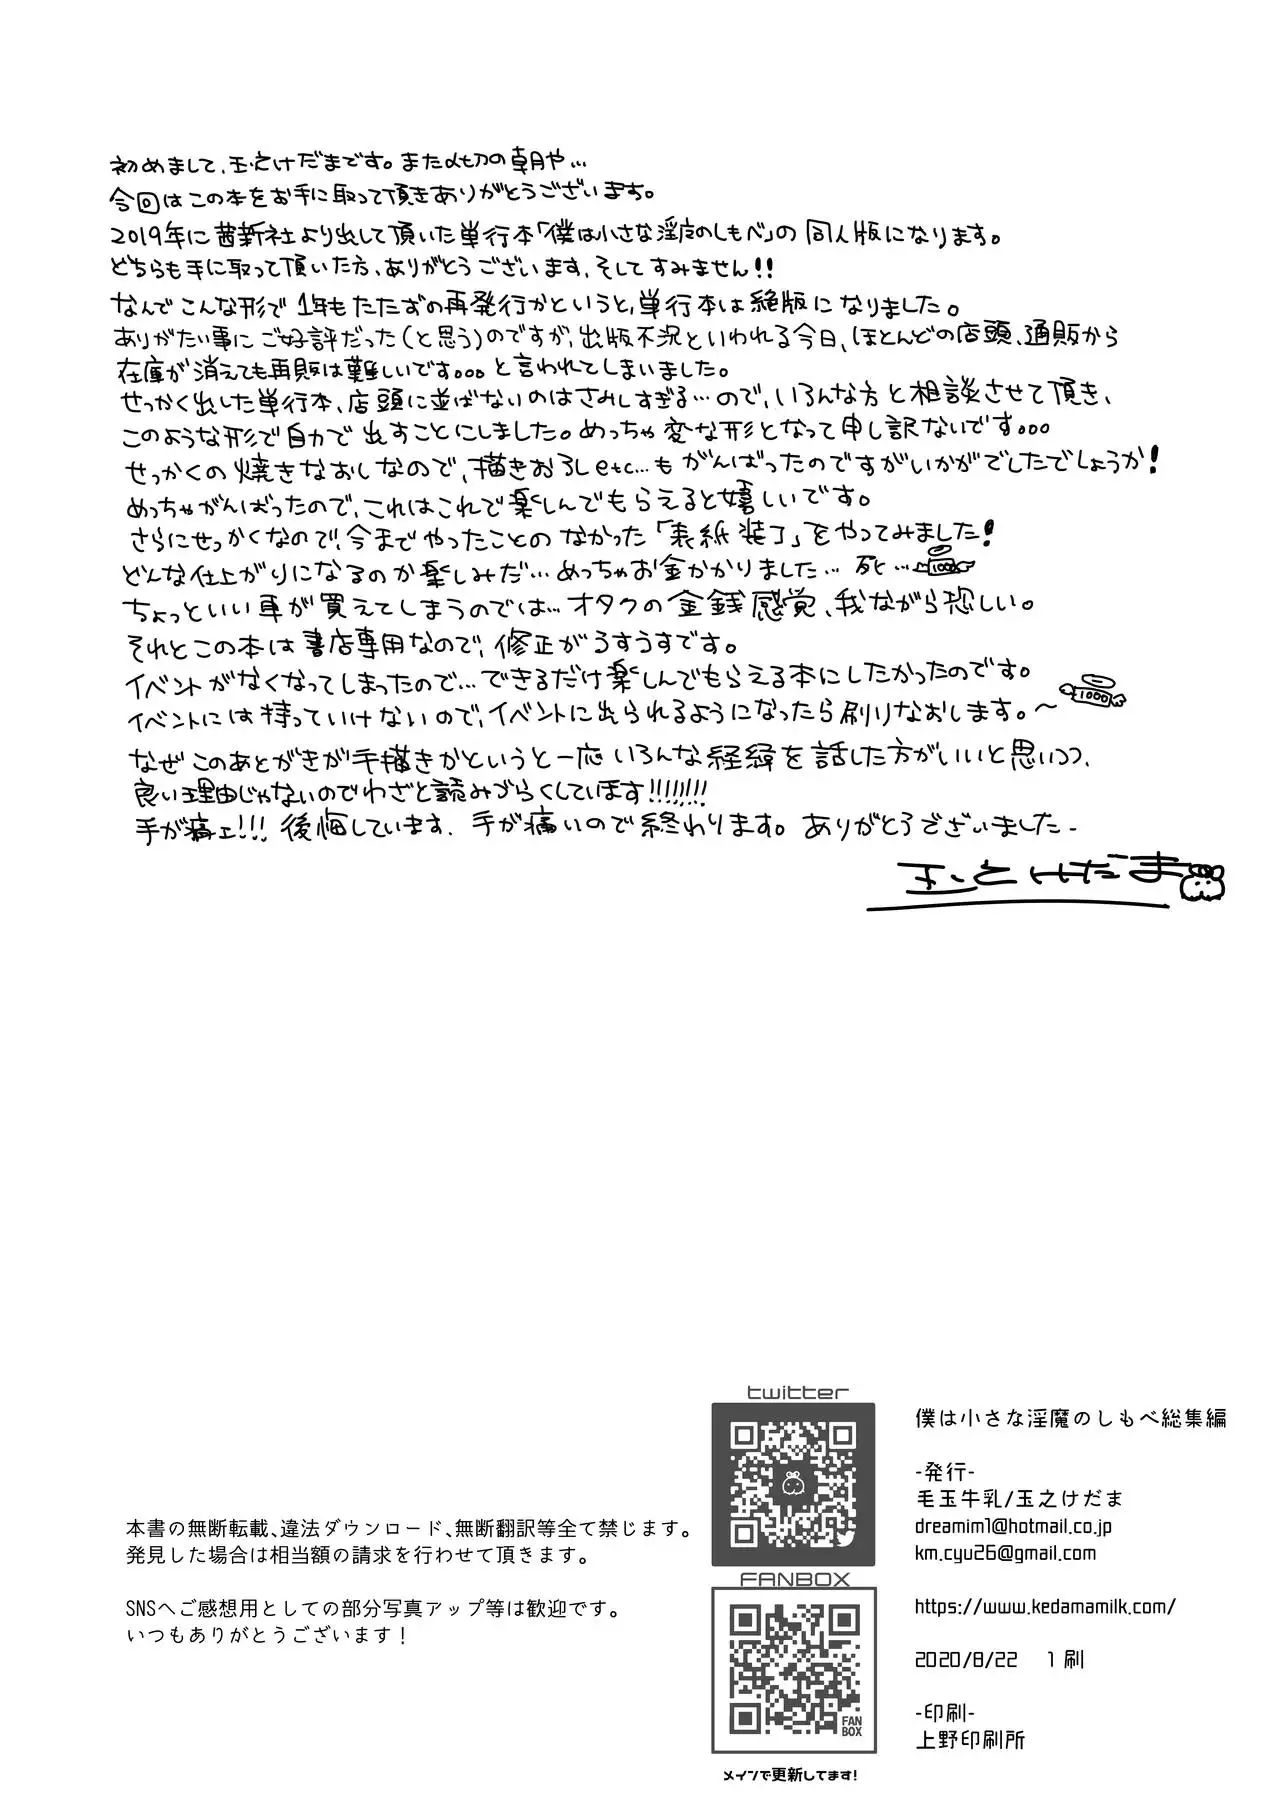 初めまして、玉之けだまです。また〆切の朝や…
今回はこの本をお手に取って頂きありがとうございます。
2019年に茜新社より出して頂いた単行本「僕は小さな淫魔のしもべ」の同人版になります。
どちらも手に取って頂いた方、ありがとうございます、そしてすみません!!
なんでこんな形で1年もたたずの再発行かというと、単行本は絶版になりました。
ありがたい事にご好評だった(と思う)のですが、出版不況といわれる今日、ほとんどの店頭、通販から
在庫が消えても再販は難しいです。。。と言われてしまいました。
せっかく出した単行本、店頭に並ばないのはさみしすぎる…ので、いろんな方と相談させて頂き、
このような形で自力で出すことにしました。めっちゃ変な形となって申し訳ないです。。。
せっかくの焼きなおしなので、描きおろしetc…もがんばったのですがいかがでしたでしょうか!
めっちゃがんばったので、これはこれで楽しんでもらえると嬉しいです。
さらにせっかくなので、今までやったことのなかった「表紙装丁」をやってみました!
どんな仕上がりになるのか楽しみだ…めっちゃお金かかりました…死…1000
ちょっといい車が買えてしまうのでは…オタクの金銭感覚、我ながら恐しい。
それとこの本は書店専用なので、修正がうすうすです。
イベントがなくなってしまったので…できるだけ楽しんでもらえる本にしたかったのです。
イベントには持っていけないので、イベントに出られるようになったら刷りなおします。～1000
なぜこのあとがきが手描きかというと一応いろんな経緯を話した方がいいと思いつつ、
良い理由じゃないのでわざと読みづらくしています!!!!!!!!
手が痛ェ!!! 後悔しています。手が痛いので終わります。ありがとうございました-
玉之けだま
twitter
FANBOX
FAN
BOX
メインで更新してます!
本書の無断転載、違法ダウンロード、無断翻訳等全て禁じます。
発見した場合は相当額の請求を行わせて頂きます。
SNSへご感想用としての部分写真アップ等は歓迎です。
いつもありがとうございます！
僕は小さな淫魔のしもべ総集編
-発行-
毛玉牛乳/玉之けだま
dreamim1@hotmail.co.jp
km.cyu26@gmail.com
https://www.kedamamilk.com/
2020/8/22 1刷
-印刷-
上野印刷所